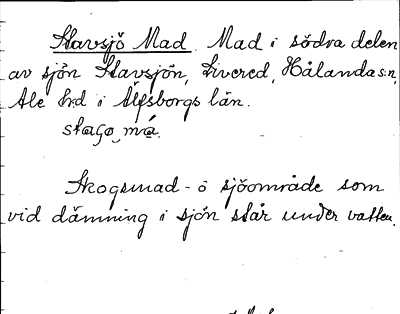 Stavsjö Mad. Mad i södra delen
av sjön Stavsjön, Livered, Hålanda sn,
Ale hd i Älfsborgs län.

Skogsmad - o sjöområde som
vid dämning i sjön står under vatten.